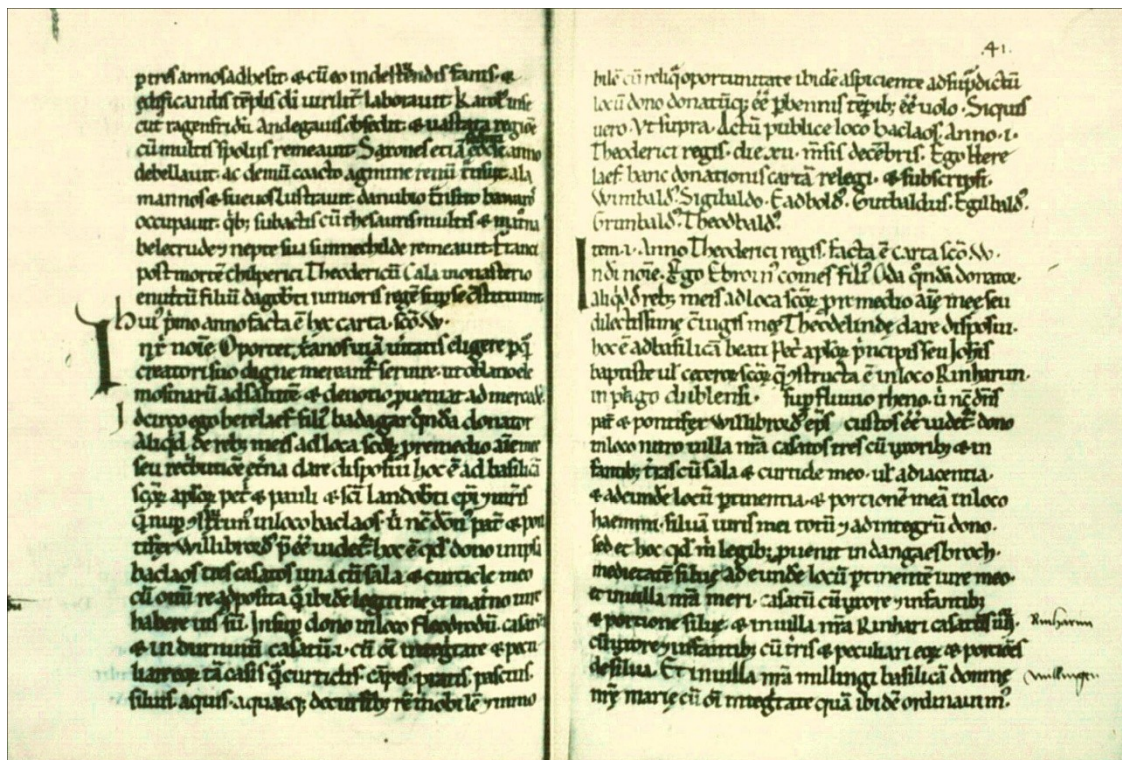 p tres annos adhesit. & cū eo in destruendis fanis. &
edificandis tēplis dī viriliter laborauit. Karolus
cut ragenfridū Andegauis obsedit. & uastata regiōe
cū multis spoliis remeauit. Saxones etiā eodē anno
debellauit. ac demū coacto agmine renū trāsiit. ala
mannos & sueuos lustrauit. danubio trāsito
occupauit. qb; subactis cū thesauris multis & matrona
beletrude 7 nepte sua sunnechilde remeauit.
post mortē chilperici Theodericū Cala monasterio
enutritū filiū dagobti iunioris regē sup se cstituunt.
hui' pmo anno facta ē hec carta. scō W.
In xp noīe. Oportet
creatori suo digne mereant seruire. ut oblatio elemosinarū ad salutē & deuotio pueniat ad
Idcirco ego herelaef filius badagar qnda donator
aliqd de reb; meis ad loca scōꝝ p remedio aīe mee
seu retbutiōe etna dare disposui hoc ē ad basilicā
scōꝝ aplōꝝ petri & pauli & scī Landobti epi 7 mris
in loco baclaos. ū
tifex Willibrord p eē uidet. hoc ē qd dono in ipso
baclaos tres casatos una cū sala & curticle meo
cū omi re adposita q ibidē legitime et
habere uisus sū. Insup dono in loco fleodrodū. casatā
& in durninū casatū.ı. cū oī integtate & pecu
liare eoꝝ tā casis q curticlis. cāpis. pratis. pascuis.
siluis. aquis. aquarūq; decursib; & mobile 7 inmo
.41.
bilē cū reliq oportunitate ibidē aspiciente ad supdictū
locū dono donatūq; eē phennis tēpib; eē uolo. Siquis
uero. Vt supra. Actū publice loco baclaos. anno .ı.
Theoderici regis. die xıı. msis decēbris. Ego Here
laef hanc donationis cartā relegi. & subscripsi.
Wīnibald'. Sigibaldo. Eadbold'. Guthaldus. Egilbald'.
Grimbald'. Theodbald'.
Item .ı. Anno Theoderici regis. facta ē carta scō W.
In dī noīe. Ego Ebroin' comes fili' Oda qnda donator.
aliqd d reb; meis ad loca scōꝝ p remedio aīe mee seu
dilectissime c iugis meę Theodelinde dare disposui.
hoc ē ad basilicā beati Petri aplōꝝ pncipis seu Johis
baptiste ul ceteroꝝ scōꝝ q cstructa ē in loco Rinharun.
in pago dublensi. sup fluuio rheno. ū nc dns
pat & pontifex Willibrord' eps custos eē uidet. dono
in loco nutro uilla mīa casatos tres cū uxorib; & in
fantib; tras cū sala & curticle meo. ul adiacentia.
& ad eunde locū ptinentia. & portionē meā in loco
haemni. siluā iuris mei totū 7 ad integrū dono.
sed et hoc qd m legib; puenit in dangaesbroch.
medietatē siluę ad eunde locū ptinentē iure meo.
et in uilla mīa meri. casatū cū uxore 7 infantib;
& portione siluę & in uilla mīa Rinhari casatos
cū uxore 7 infantib; cū tris & peculiari eoꝝ & portiōes
de silua. Et in uilla mīa millingi basilicā domnę
mę marię cū oī integtate quā ibidē ordinauim'.
Rinharun
millingen